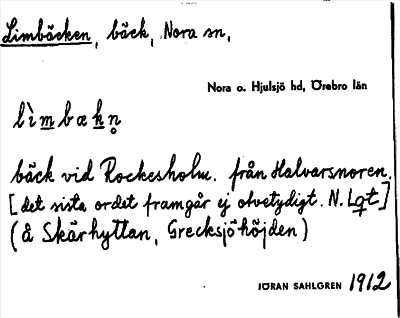 Limbäcken, bäck, Nora sn,
Nora o. Hjulsjö hd, Örebro län
lìmbækn̥
bäck vid Rockesholm. från Halvarsnoren.
[det sista ordet framgår ej otvetydigt. N. Lqt]
(å Skärhyttan, Grecksjöhöjden)
JÖRAN SAHLGREN 1912